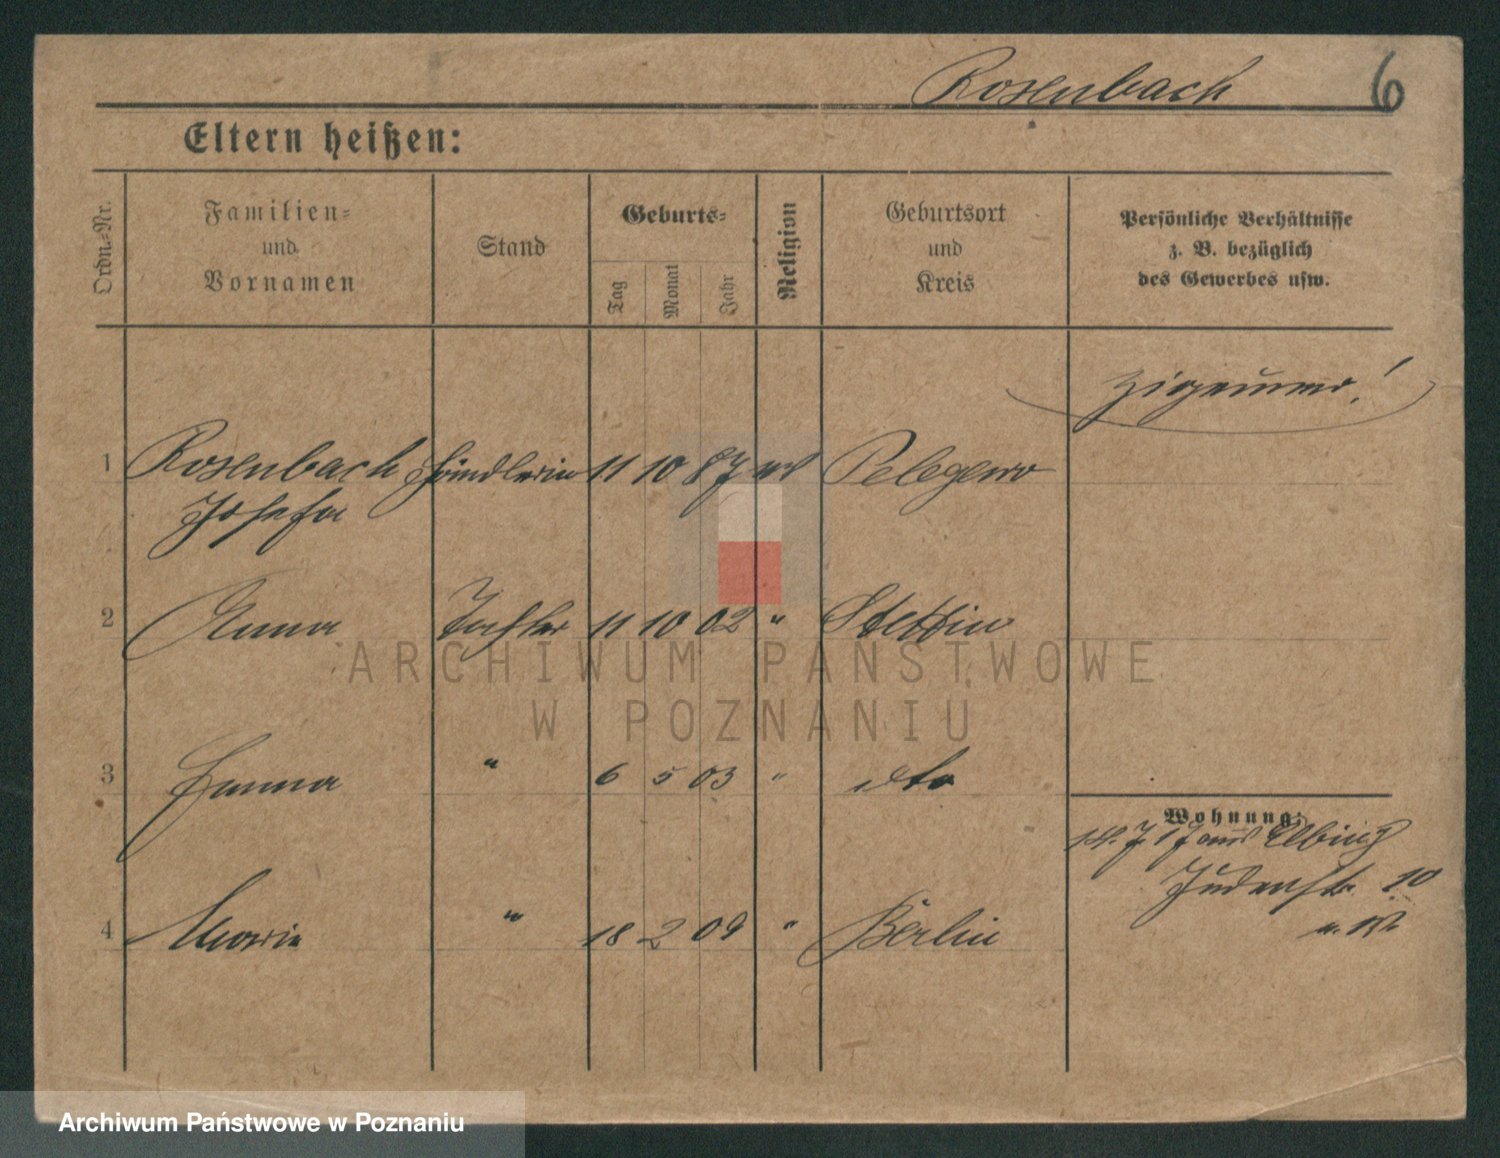 Rosenbach 6
Eltern heißen:
Ordn.-Nr.
Familien-
und
Vornamen
Stand
Geburts-
Tag
Monat
Jahr
Religion
Geburtsort
und
Kreis
Persönliche Verhältnisse
z. B. bezüglich
des Gewerbes usw.
Zigeuner!
1 Rosenbach Händlerin 11 10 87
Josefa
2 Anna Tochter 11 10 02 " Stettin
3 Emma " 6 5 03 " dto
4 Marie " 18 2 09 " Berlin
Wohnung:
14. 7. 17 aus Elbing
Judenstr. 10
ARCHIWUM PAŃSTWOWE
W POZNANIU
Archiwum Państwowe w Poznaniu